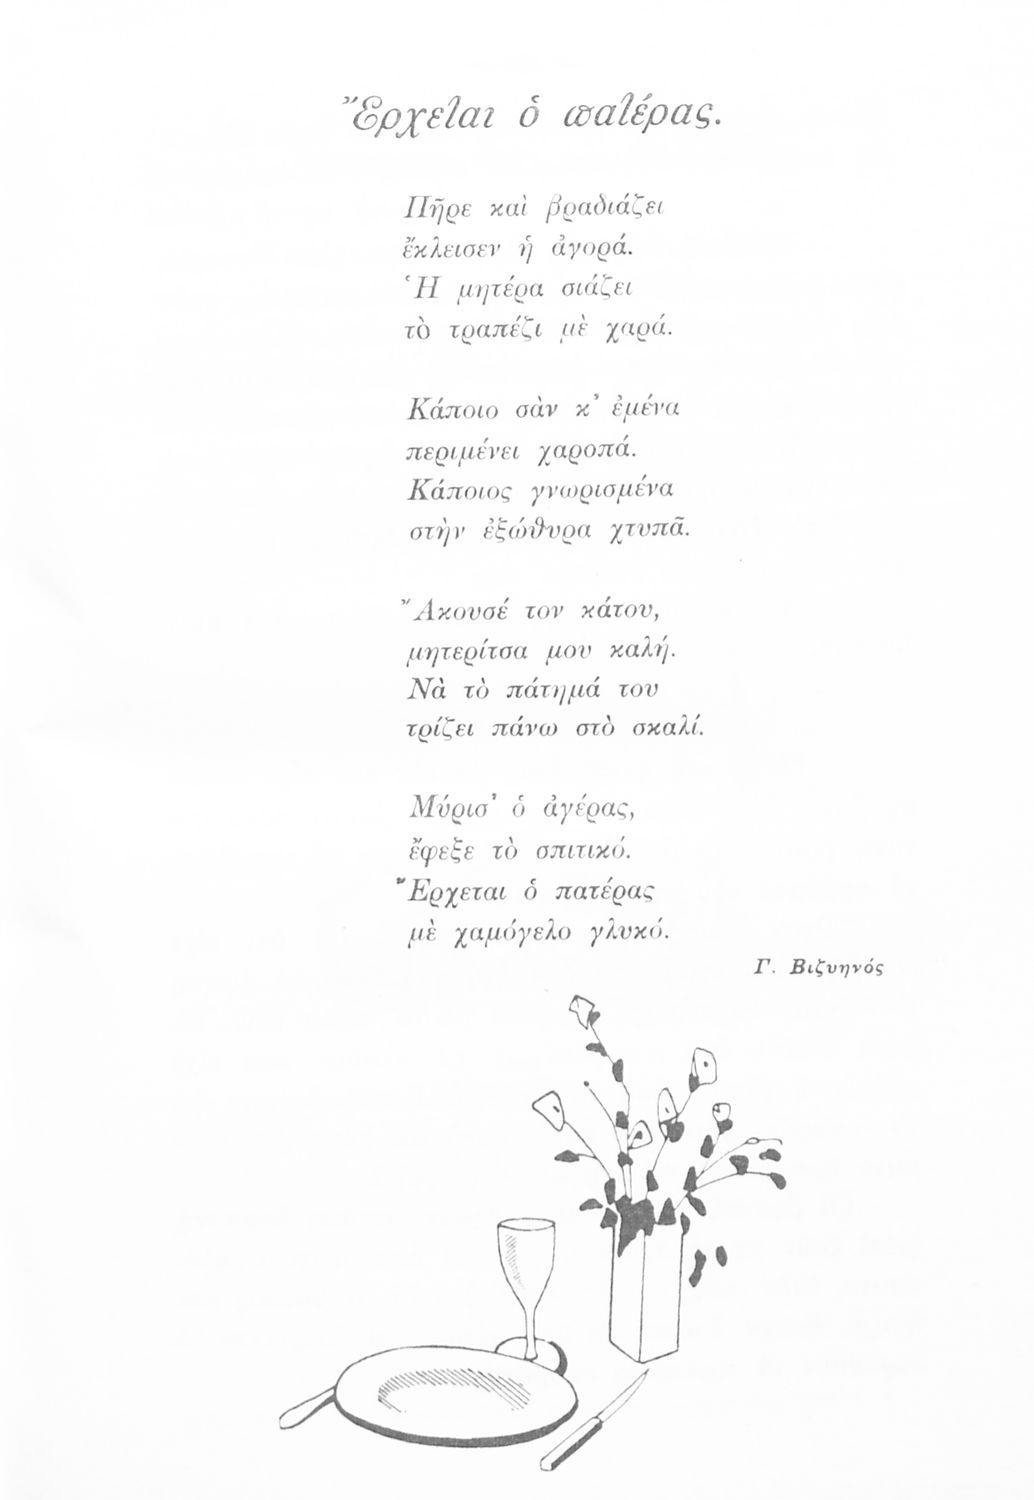 Ἔρχεται ὁ πατέρας.
Πῆρε καὶ βραδιάζει
ἔκλεισεν ἡ ἀγορά.
Ἡ μητέρα σιάζει
τὸ τραπέζι μὲ χαρά.
Κάποιο σὰν κ' ἐμένα
περιμένει χαροπά.
Κάποιος γνωρισμένα
στὴν ἐξώθυρα χτυπᾶ.
Ἄκουσέ τον κάτου,
μητερίτσα μου καλή.
Νὰ τὸ πάτημά του
τρίζει πάνω στὸ σκαλί.
Μύρισ' ὁ ἀγέρας,
ἔφεξε τὸ σπιτικό.
Ἔρχεται ὁ πατέρας
μὲ χαμόγελο γλυκό.
Γ. Βιζυηνός